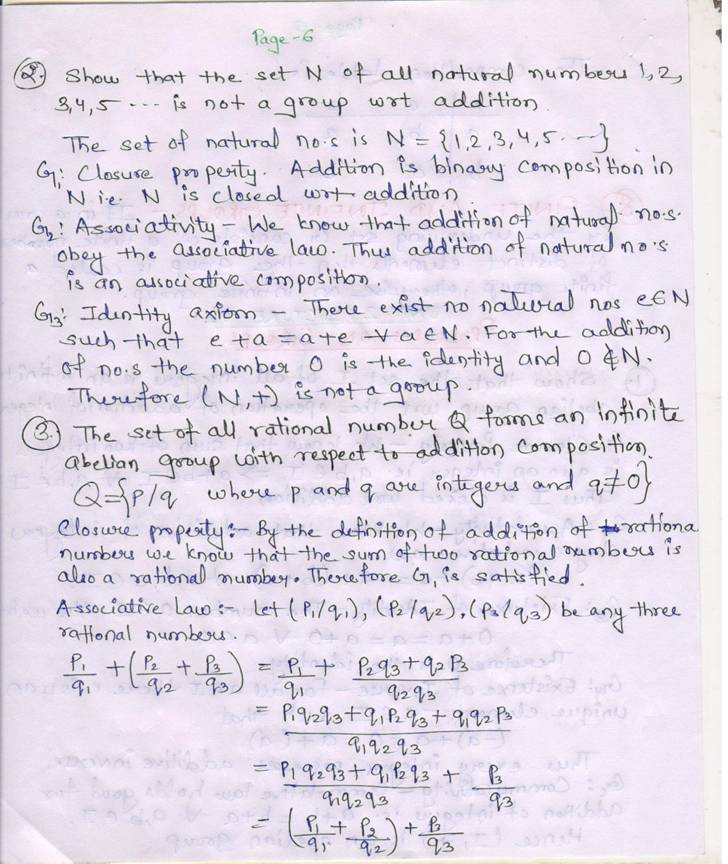 Page-6
2. Show that the set N of all natural numbers 1, 2,
3,4,5 ... is not a group wrt addition.
The set of natural no.s is N = {1,2,3,4,5...}
G1: Closure property. Addition is binary composition in
N i.e. N is closed wrt addition.
G2: Associativity - We know that addition of natural no.s.
obey the associative law. Thus addition of natural no.s
is an associative composition.
G3: Identity axiom - There exist no natural nos e∈N
such that e+a = a+e ∀ a∈N. For the addition
of no.s the number 0 is the identity and 0∉N.
Therefore (N,+) is not a group.
3. The set of all rational number Q forms an infinite
abelian group with respect to addition composition.
Q={P/q where p and q are integers and q≠0}
Closure property:- By the definition of addition of rationa
numbers we know that the sum of two rational numbers is
also a rational number. Therefore G1 is satisfied.
Associative Law:- Let (P1/q1), (P2/q2), (P3/q3) be any three
rational numbers.
P1/q1 + (P2/q2 + P3/q3) = P1/q1 + (P2q3+q2P3)/(q2q3)
= (P1q2q3+q1P2q3+q1q2P3)/(q1q2q3)
= (P1q2q3+q1P2q3)/(q1q2q3) + P3/q3
= (P1/q1 + P2/q2) + P3/q3